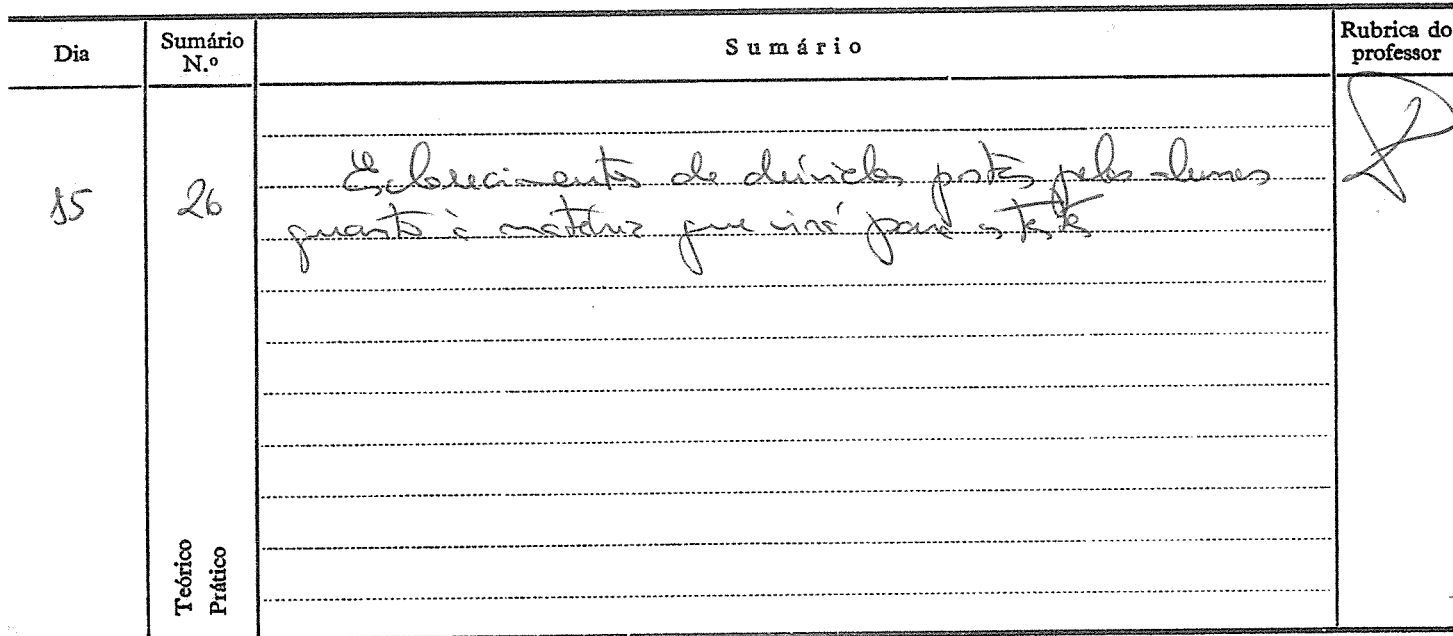 Dia
Sumário N.º
Sumário
Rubrica do professor
15
26
Esclarecimentos de dúvidas postas pelos alunos
quanto à matéria que virá para o teste
Teórico
Prático